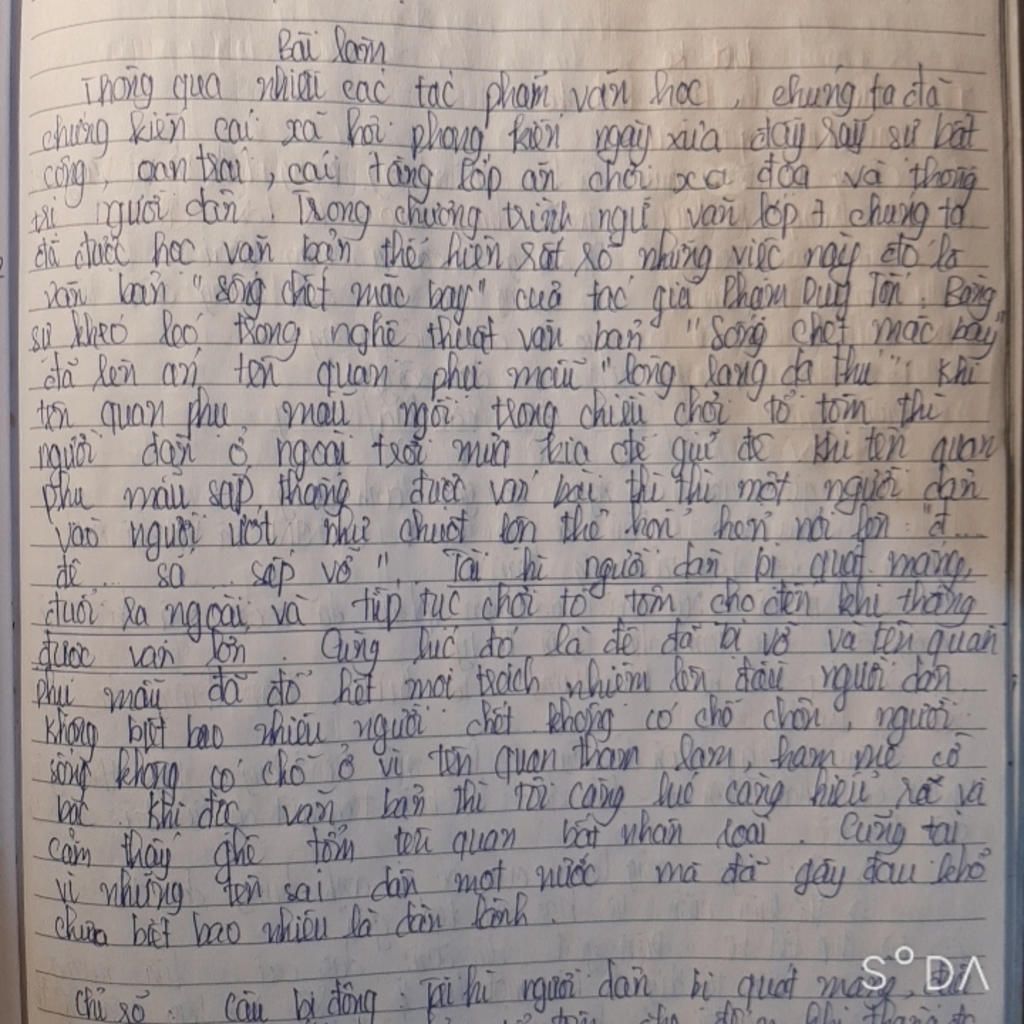 Bài làm
Thông qua nhiều các tác phẩm văn học, chúng ta đã
chứng kiến cái xã hội phong kiến ngày xưa đầy rẫy sự bất
công, oan trái, cái tầng lớp ăn chơi xa đọa và thống
trị người dân. Trong chương trình ngữ văn lớp 7 chúng ta
đã được học văn bản thể hiện rất rõ những việc này đó là
văn bản "sống chết mặc bay" của tác giả Phạm Duy Tốn. Bằng
sự khéo léo trong nghệ thuật văn bản "Sống chết mặc bay"
đã lên án tên quan phụ mẫu "lòng lang dạ thú". Khi
tên quan phụ mẫu ngồi trong chiếu chơi tổ tôm thì
người dân ở ngoài trời mưa kia để giữ đê khi tên quan
phụ mẫu sắp thắng được ván bài thì thì một người dân
vào người ướt như chuột lột thở hổn hển nói lớn: "đ...
đê... sá... sắp vỡ". Tài hi người dân bị quát mắng,
đuổi ra ngoài và tiếp tục chơi tổ tôm cho đến khi thắng
được ván lớn. Cùng lúc đó là đê đã bị vỡ và tên quan
phụ mẫu đã đổ hết mọi trách nhiệm lên đầu người dân
không biết bao nhiêu người chết không có chỗ chôn, người
sống không có chỗ ở vì tên quan tham lam, ham mê cờ
bạc. Khi đọc văn bản thì tôi càng lúc càng hiểu rõ và
cảm thấy ghê tởm tên quan bất nhân loại. Cũng tại
vì những tên sai dân một nước mà đã gây đau khổ
chưa biết bao nhiêu là dân lành.
chỉ số: câu bị động: Tài hi người dân bị quát mắng,